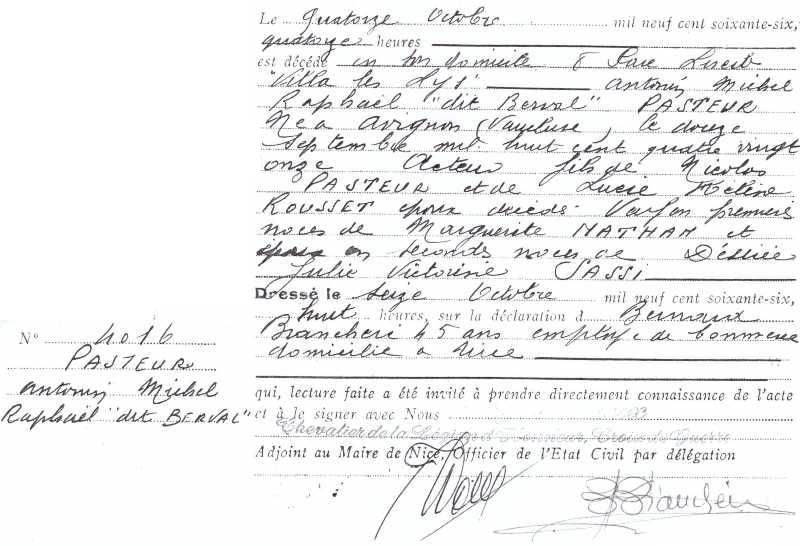 Le Quatorze Octobre mil neuf cent soixante-six,
quatorze heures
est décédé en son domicile 8 Parc Liserb
"Villa les Lys" Antonin Michel
Raphaël "dit Berval" PASTEUR
Né à Avignon (Vaucluse) le douze
Septembre mil huit cent quatre vingt
onze Acteur fils de Nicolas
PASTEUR et de Lucie Hélène
ROUSSET époux décédés Veuf en premières
noces de Marguerite NATHAN et
époux en secondes noces de Désirée
Julie Victorine SASSI
Dressé le Seize Octobre mil neuf cent soixante-six,
huit heures, sur la déclaration d Bernoux
45 ans employé de commerce
domicilié à Nice
qui, lecture faite a été invité à prendre directement connaissance de l'acte
et à le signer avec Nous
Chevalier de la Légion d'Honneur, Croix de Guerre
Adjoint au Maire de Nice, Officier de l'Etat Civil par délégation
N° 4016
PASTEUR
Antonin Michel
Raphaël "dit BERVAL"